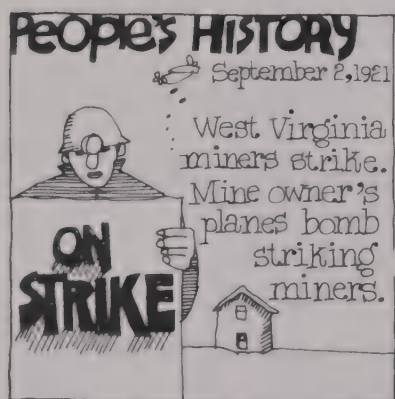 PeoPle's HISTORY
September 2, 1921
West Virginia
miners strike.
Mine owner's
planes bomb
striking
miners.
ON
STRIKE